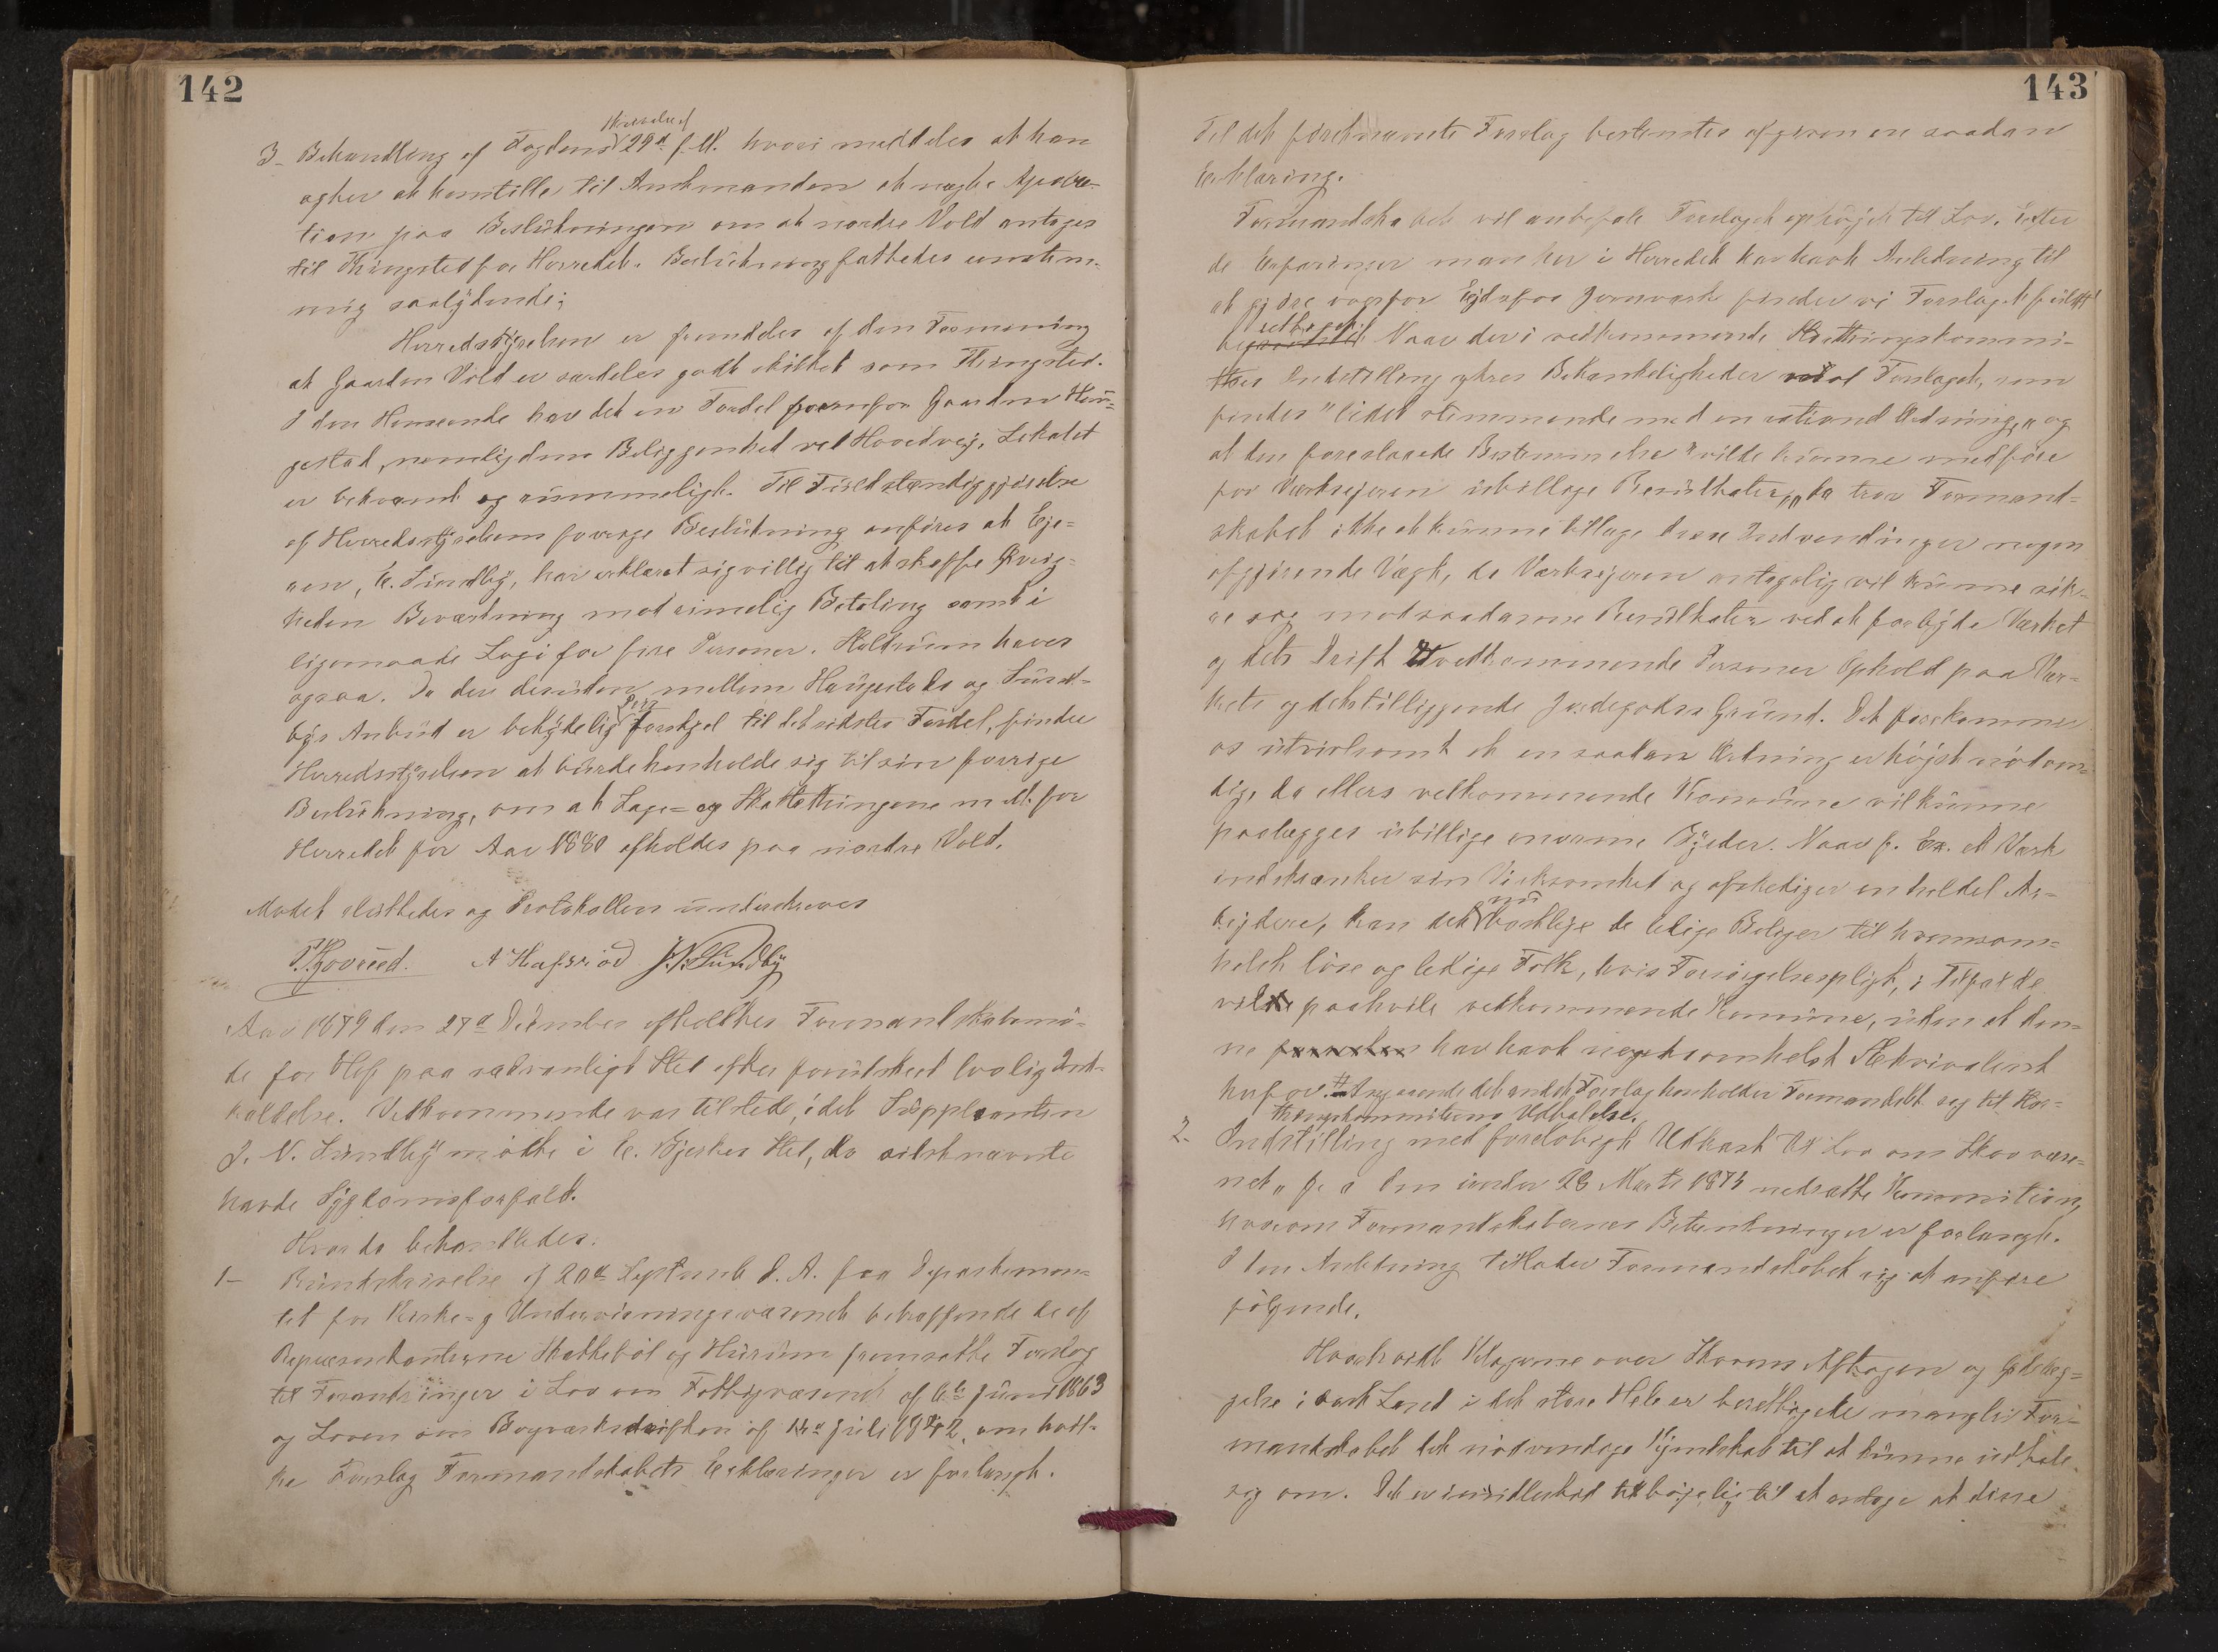 142
Skrivelse af
3- Behandling af Fogdens 29de f. M. hvori meddeles at han
agter at henstille til Amtmanden at negte Approba-
tion paa Beslutningen om at nordre Vold antages
til Thingsted for Herredet. Beslutning fattedes enstem-
mig saalydende;
Herredsstyrelsen er fremdeles af den Formening
at Gaarden Vold er særdeles godt skikket som Thingsted.
I den Henseende har det en Fordel fremfor Gaarden Hau-
gestad, nemlig dens Beliggenhed ved Hovedvej. Lokalet
er bekvemt og rummeligt. Til Fuldstændiggjørelse
af Herredsstyrelsens forrige Beslutning anføres at Eje-
ren, E. Sundby, har erklæret sig villig til at skaffe Øvrig-
heden Beværtning mod rimelig Betaling samt i
ligemaade Logi for fire Personer. Staldrum haves
ogsaa. Da der desuden mellem Haugestads og Sund-
bys Anbud er betydelig Pris forskjel til det sidstes Fordel, finder
Herredsstyrelsen at burde henholde sig til sin forrige
Beslutning, om at Lage- og Skattethingene m. M. for
Herredet for Aar 1880 afholdes paa nordre Vold.
Mødet sluttedes og Protokollen underskreves
J. N. Sundby
Aar 1879 den 27de December afholdtes Formandskabsmø-
de for Hof paa sædvanligt Sted efter forudskeet lovlig Ind-
kaldelse. Vedkommende var tilstede, idet Suppleanten
J. N. Sundby mødte i E. Gjeskes Sted, da sidstnævnte
havde Sygdomsforfald.
Hvor da behandledes:
1- Rundskrivelse af 20de Septemb d. A. fra Departemen-
tet for Kirke- og Undervisningsvæsenet betræffende de af
Repræsentanterne Skattebøl og Huseum fremsatte Forslag
til Forandringer i Lov om Fattigvæsenet af 6te Juni 1863
og Loven om Bergværksdriften af 14de Juli 1842, om hvil-
ke Forslag Formandskabets Erklæringer er forlangt.
143
Til det førstnævnte Forslag bestemtes afgiven en saadan
Erklæring.
Formandskabet vil anbefale Forslaget ophøjet til Lov. Efter
de Erfaringer man her i Herredet har havt Anledning til
at gjøre ovenfor Ejdsfos Jernværk finder vi Forslaget fuldt
Naar der i vedkommende Stortingskommi-
ttees Indstilling ytres Betænkeligheder ved Forslaget, som
findes "lidet stemmende med en rationel Ordning," og
at den foreslaaede Bestemmelse "vilde kunne medføre
for Værksejeren ubillige Resultater," da tror Formand-
skabet ikke at kunne tillægge disse Indvendinger nogen
afgjørende Vægt, da Værksejeren antagelig vil kunne sik-
re sig mod saadanne Resultater ved at forbyde Værket
og dets Drift uvedkommende Personer Ophold paa Vær-
kets og dets tilliggende Jordegodses Grund. Det forekommer
os utvivlsomt at en saadan Ordning er højst nødven-
dig, da ellers vedkommende Komune vil kunne
paalægges ubillige enorme Byrder. Naar f. Ex. et Værk
indskrænker sin Virksomhed og afskediger en heldel Ar-
bejdere, kan det nu bortleje de ledige Boliger til hvemsom-
helst løse og ledige Folk, hvis Forsørgelsespligt, i Tilfælde
vil paahvile vedkommende Komune, uden at den-
ne har havt nogetsomhelst Ækvivalent
herfor. # Angaaende det andet Forslag henholder Formandsk. sig til Stor-
thingskommiteens Udtalelse.
2- Indstilling med foreløbigt Udkast til Lov om Skovvæse-
net, fra den under 28 Marts 1874 nedsatte Kommission,
hvorom Formandskabernes Betænkninger er forlangt.
I den Anledning tillader Formandskabet sig at anføre
følgende.
Hvorvidt Klagerne over Skovens Aftagen og Ødelæg-
gelse i vort Land i det store Hele er berettigede mangler For-
mandskabet det nødvendige Kjendskab til at kunne udtale
sig om. Det er imidlertid tilbøjelig til at antage at disse